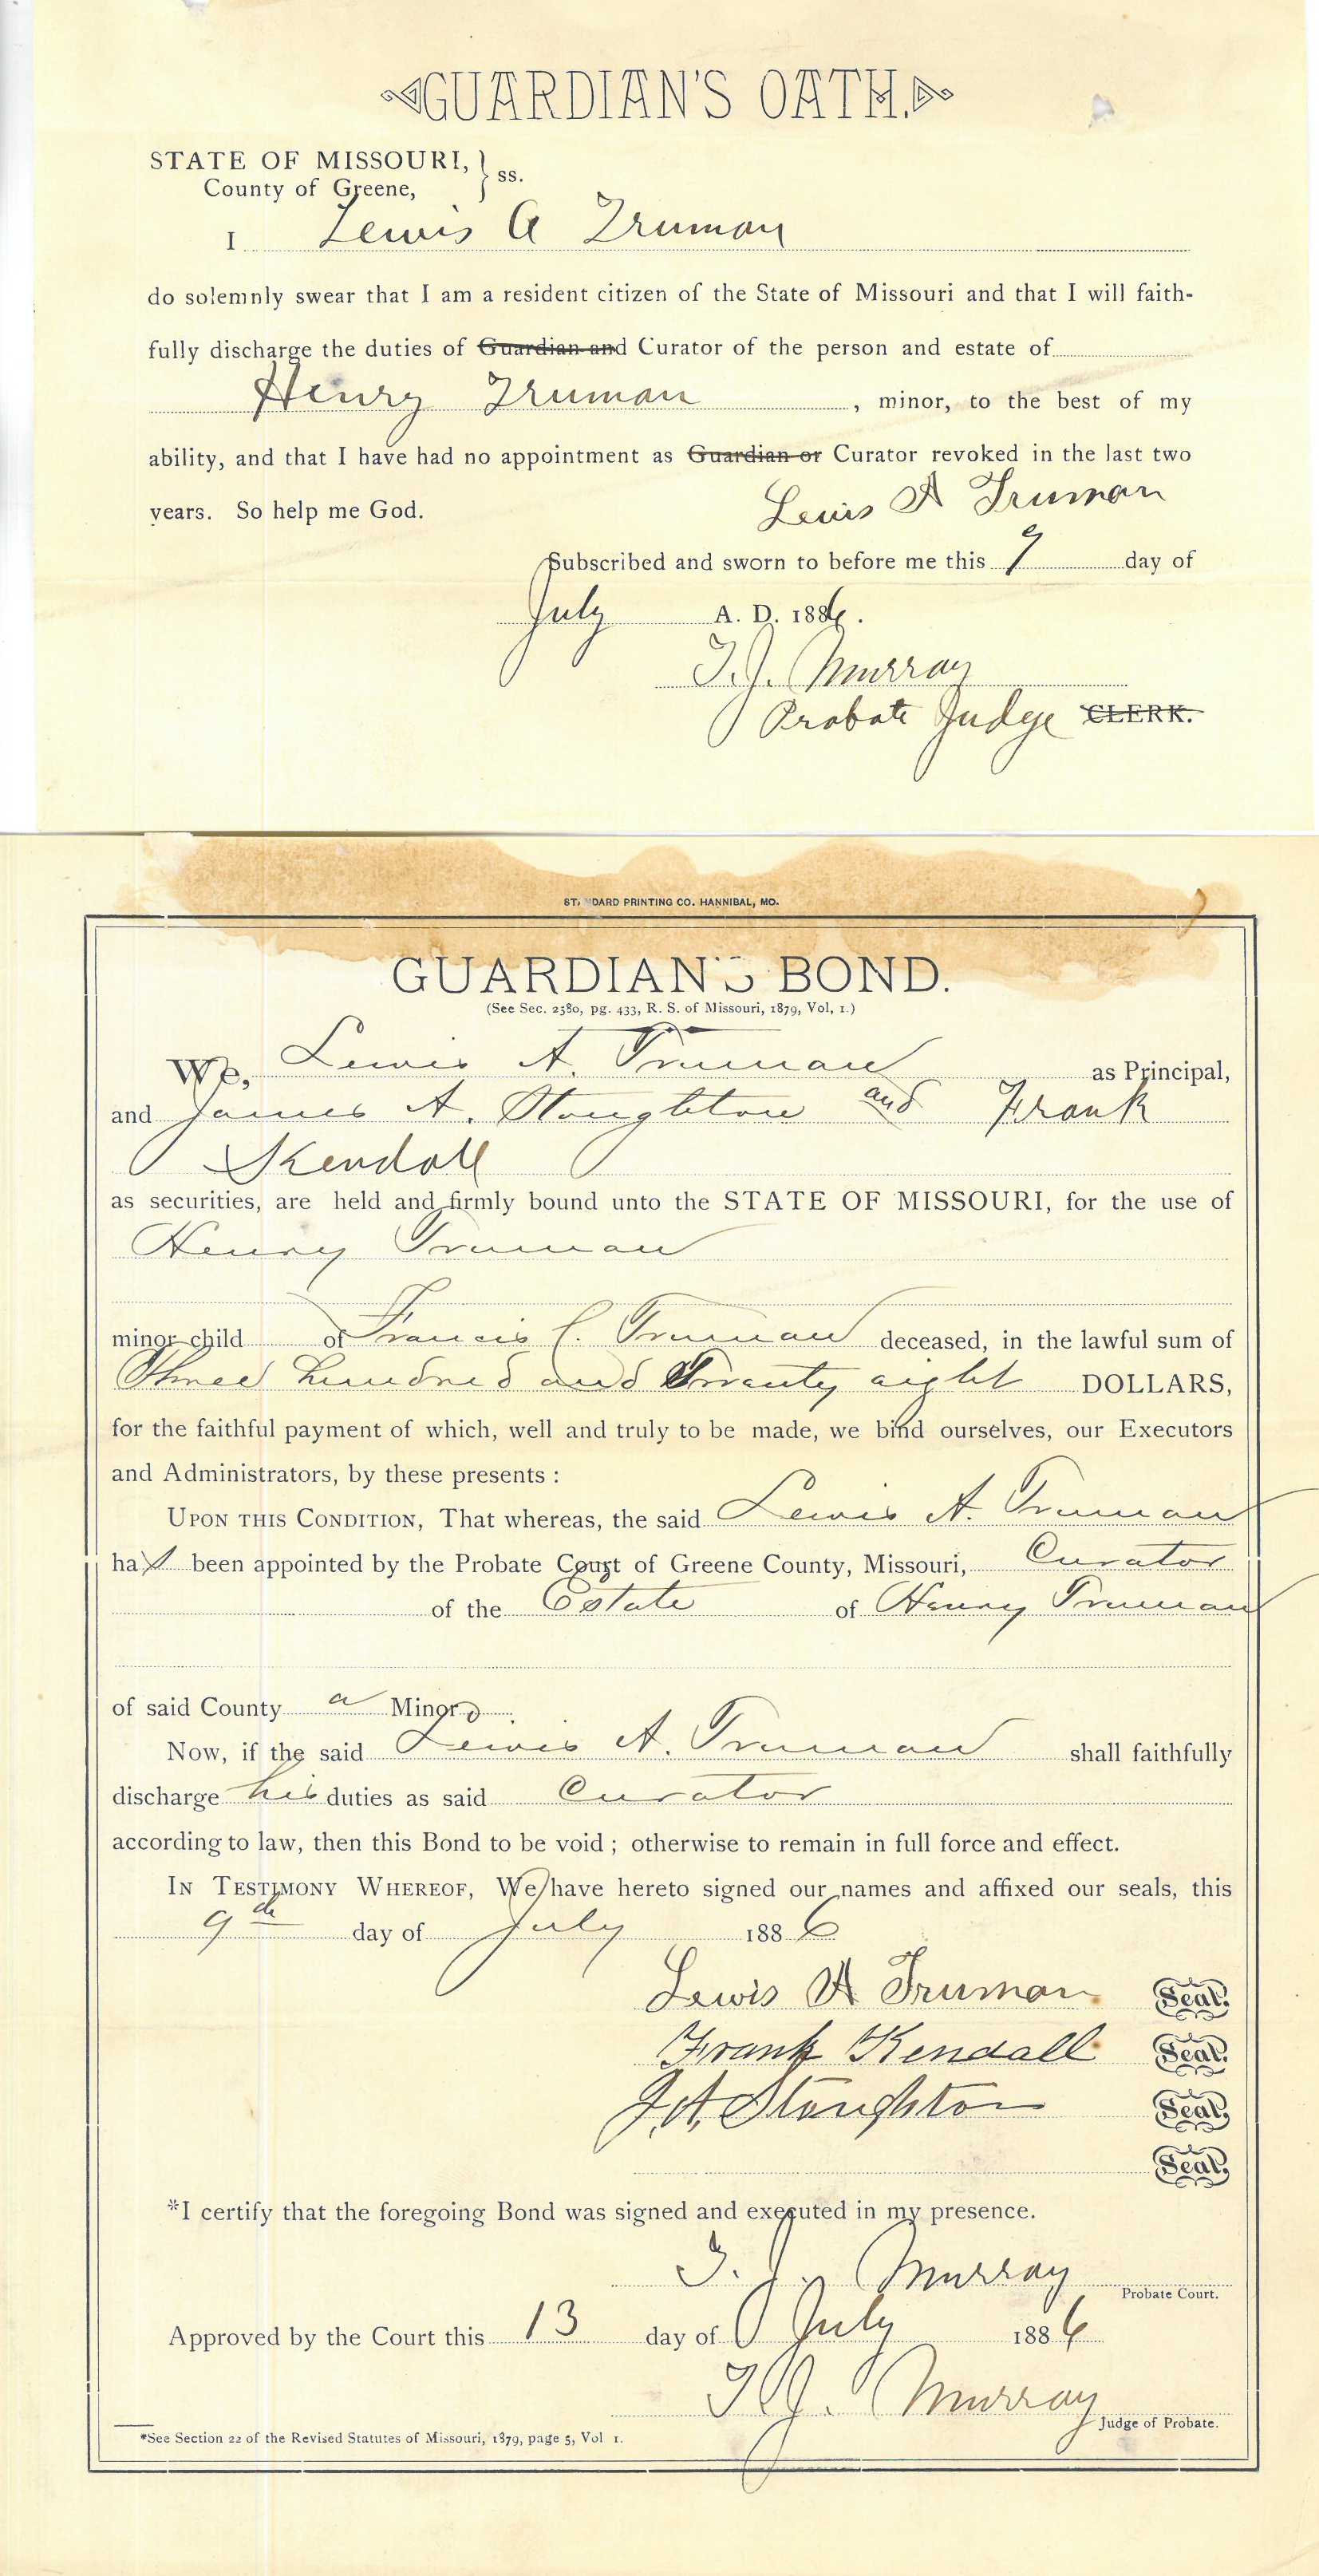 GUARDIAN'S OATH.
STATE OF MISSOURI, } ss.
County of Greene,
I Lewis A Truman
do solemnly swear that I am a resident citizen of the State of Missouri and that I will faith-
fully discharge the duties of Guardian and Curator of the person and estate of
Henry Truman, minor, to the best of my
ability, and that I have had no appointment as Guardian or Curator revoked in the last two
years. So help me God.
Lewis A Truman
Subscribed and sworn to before me this 9 day of
July A. D. 1886.
T. J. Murray
Probate Judge CLERK.
STANDARD PRINTING CO. HANNIBAL, MO.
GUARDIAN'S BOND.
(See Sec. 2580, pg. 433, R. S. of Missouri, 1879, Vol, 1.)
We, Lewis A. Truman as Principal,
and James A. Stoughton and Frank
Kendall
as securities, are held and firmly bound unto the STATE OF MISSOURI, for the use of
Henry Truman
minor child of Francis C. Truman deceased, in the lawful sum of
Three hundred and Twenty eight DOLLARS,
for the faithful payment of which, well and truly to be made, we bind ourselves, our Executors
and Administrators, by these presents :
UPON THIS CONDITION, That whereas, the said Lewis A. Truman
has been appointed by the Probate Court of Greene County, Missouri, Curator
of the Estate of Henry Truman
of said County a Minor
Now, if the said Lewis A. Truman shall faithfully
discharge his duties as said Curator
according to law, then this Bond to be void ; otherwise to remain in full force and effect.
IN TESTIMONY WHEREOF, We have hereto signed our names and affixed our seals, this
9th day of July 1886
Lewis A Truman Seal.
Frank Kendall Seal.
J. A. Stoughton Seal.
Seal.
*I certify that the foregoing Bond was signed and executed in my presence.
T. J. Murray
Probate Court.
Approved by the Court this 13 day of July 1886
T. J. Murray
Judge of Probate.
*See Section 22 of the Revised Statutes of Missouri, 1879, page 5, Vol 1.